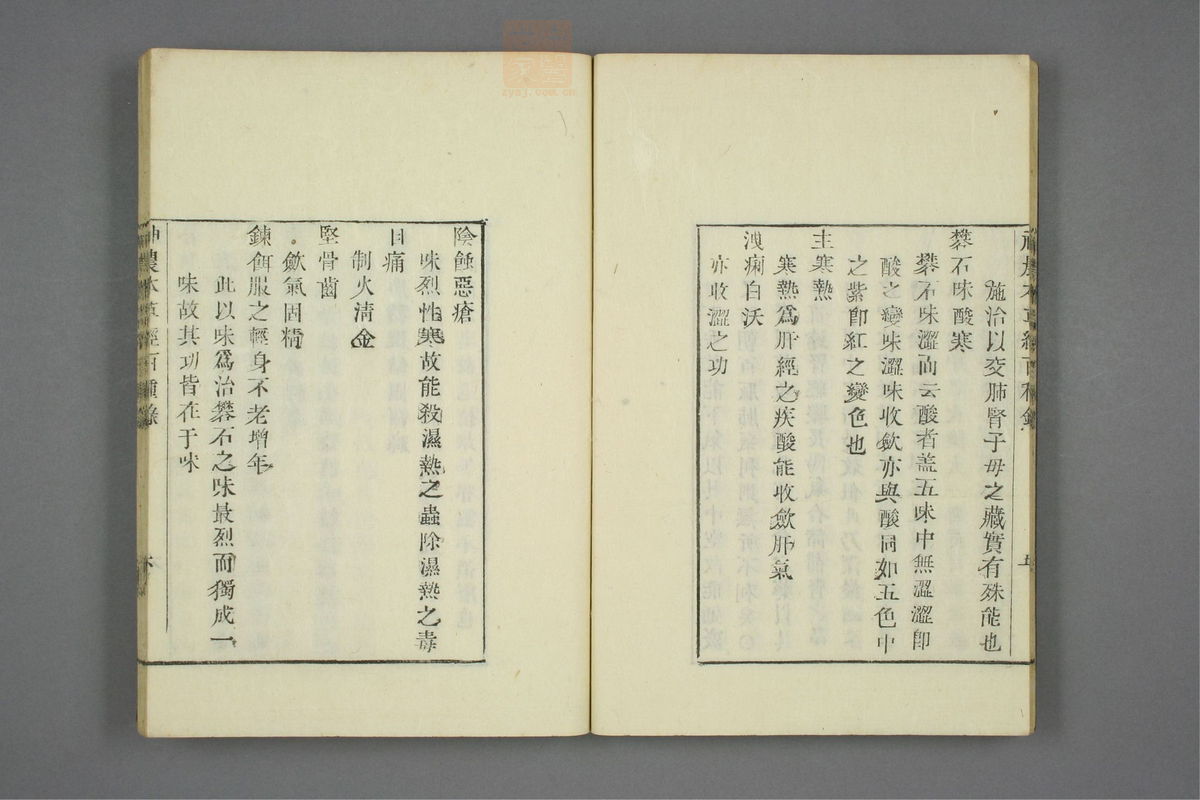 施治以交肺腎子母之藏實有殊能也
礬石味酸寒
礬石味澀而云酸者蓋五味中無澀澀卽
酸之變味澀味收歛亦與酸同如五色中
之紫卽紅之變色也
主寒熱
寒熱爲肝經之疾酸能收歛肝氣
洩痢白沃
亦收澀之功
陰蝕惡瘡
味烈性寒故能殺濕熱之蟲除濕熱之毒
目痛
制火淸金
堅骨齒
歛氣固精
鍊餌服之輕身不老增年
此以味爲治礬石之味最烈而獨成一
味故其功皆在于味
神農本草經百種錄
zysj.com.cn